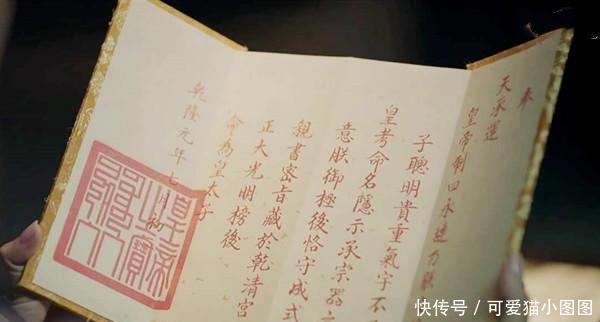 奉
天承運
皇帝制曰永璉乃朕
子聰明貴重氣宇不
皇考命名隱示承宗器之
意朕御極後恪守成式
親書密旨藏於乾清宮
正大光明榜後
命為皇太子
乾隆元年七月初
皇帝之寶
快传号 / 可爱猫小图图